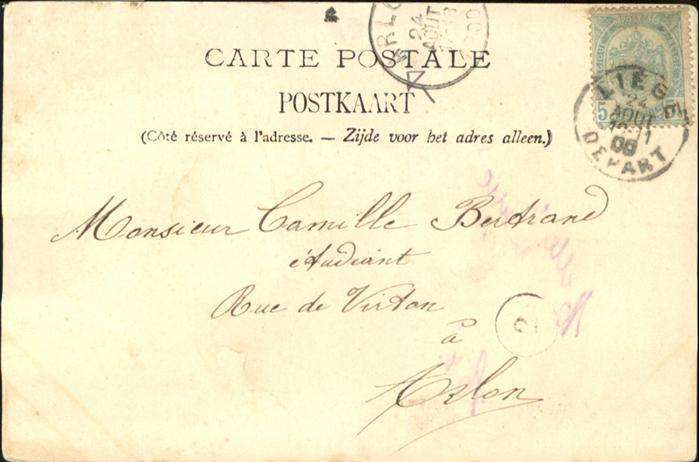 CARTE POSTALE
POSTKAART
(Côté réservé à l'adresse. — Zijde voor het adres alleen.)
LIEGE
22
AOUT
11
00
DEPART
24
AOUT
Monsieur Camille Bertrand
étudiant
Rue de Virton
2
à
Arlon